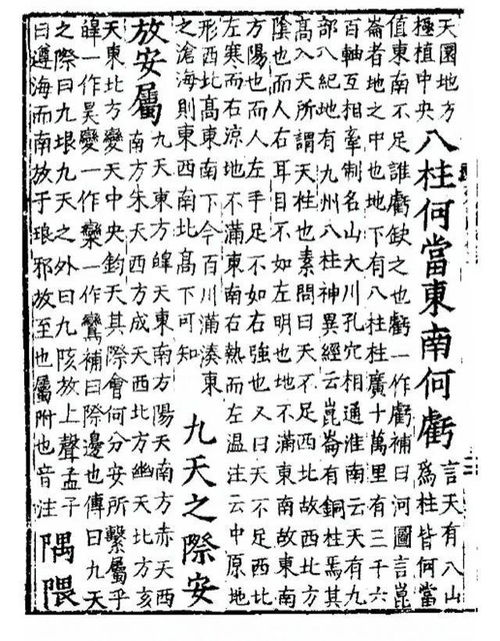 天圜地方
極植中央
八柱何當東南何虧
言天有八山
爲柱皆何當
值東南不足誰虧缺之也虧一作𧇾補曰河圖言崑
崙者地之中也地下有八柱柱廣十萬里有三千六
百軸互相牽制名山大川孔穴相通淮南云天有九
部八紀地有九州八柱神異經云崑崙有銅柱焉其
高入天所謂天柱也素問曰天不足西北故西北方
陰也而人右耳目不如左明也地不滿東南故東南
方陽也而人左手足不如右強也又曰天不足西北
左寒而右涼地不滿東南右熱而左温注云中原地
形西北高東南下今百川滿湊東
之滄海則東西南北高下可知
九天之際安
放安屬
九天東方皞天東南方陽天南方赤天西
南方朱天西方成天西北方幽天北方玄
天東北方變天中央鈞天其際會何分安所繫屬乎
皞一作昊變一作欒一作鸞補曰際邊也傳曰九天
之際曰九垠九天之外曰九陔放上聲孟子
曰遵海而南放于琅邪放至也屬附也音注
隅隈